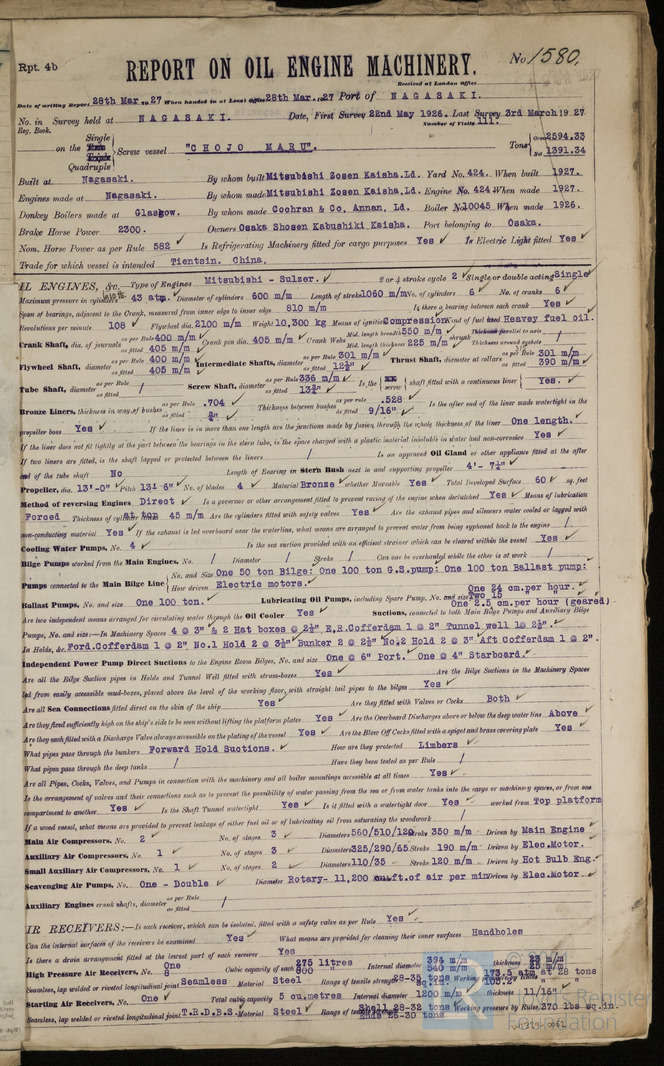 Rpt. 4b
REPORT ON OIL ENGINE MACHINERY.
No. 1580.
Received at London Office
Date of writing Report 28th Mar. 1927 When handed in at Local Office 28th Mar. 1927 Port of NAGASAKI.
No. in Survey held at NAGASAKI. Date, First Survey 22nd May 1926. Last Survey 3rd March 1927
Reg. Book. Number of Visits 111.
on the Single Triple Quadruple Screw vessel "CHOJO MARU". Tons Gross 2594.33 Net 1391.34
Built at Nagasaki. By whom built Mitsubishi Zosen Kaisha, Ld. Yard No. 424. When built 1927.
Engines made at Nagasaki. By whom made Mitsubishi Zosen Kaisha, Ld. Engine No. 424 When made 1927.
Donkey Boilers made at Glasgow. By whom made Cochran & Co, Annan, Ld. Boiler No. 10045 When made 1926.
Brake Horse Power 2300. Owners Osaka Shosen Kabushiki Kaisha. Port belonging to Osaka.
Nom. Horse Power as per Rule 582 Is Refrigerating Machinery fitted for cargo purposes Yes Is Electric Light fitted Yes
Trade for which vessel is intended Tientsin. China.
IL ENGINES, &c. Type of Engines Mitsubishi - Sulzer. 2 or 4 stroke cycle 2 Single or double acting Single
Maximum pressure in cylinders 43 atm. Diameter of cylinders 600 m/m Length of stroke 1060 m/m No. of cylinders 6 No. of cranks 6
Span of bearings, adjacent to the Crank, measured from inner edge to inner edge 810 m/m Is there a bearing between each crank Yes
Revolutions per minute 108 Flywheel dia. 2100 m/m Weight 10,300 kg Means of ignition Compression Kind of fuel used Heavey fuel oil.
Crank Shaft, dia. of journals as per Rule 400 m/m as fitted 405 m/m Crank pin dia. 405 m/m Crank Webs Mid. length breadth 550 m/m Mid. length thickness 225 m/m shrunk Thickness parallel to axis / Thickness around eyehole /
Flywheel Shaft, diameter as per Rule 400 m/m as fitted 405 m/m Intermediate Shafts, diameter as per Rule 301 m/m as fitted 12⅞" Thrust Shaft, diameter at collars as per Rule 301 m/m as fitted 390 m/m
Tube Shaft, diameter as per Rule / as fitted / Screw Shaft, diameter as per Rule 336 m/m as fitted 13¾" Is the screw shaft fitted with a continuous liner Yes.
Bronze Liners, thickness in way of bushes as per Rule .704 as fitted ¾" Thickness between bushes as per rule .528 as fitted 9/16" Is the after end of the liner made watertight in the
propeller boss Yes If the liner is in more than one length are the junctions made by fusion through the whole thickness of the liner One length.
If the liner does not fit tightly at the part between the bearings in the stern tube, is the space charged with a plastic material insoluble in water and non-corrosive Yes
If two liners are fitted, is the shaft lapped or protected between the liners / Is an approved Oil Gland or other appliance fitted at the after
end of the tube shaft No Length of Bearing in Stern Bush next to and supporting propeller 4'- 7½"
Propeller, dia. 13'-0" Pitch 13' 6" No. of blades 4 Material Bronze whether Moveable Yes Total Developed Surface 60 sq. feet
Method of reversing Engines Direct Is a governor or other arrangement fitted to prevent racing of the engine when declutched Yes Means of lubrication
Forced Thickness of cylinder liners at top 45 m/m Are the cylinders fitted with safety valves Yes Are the exhaust pipes and silencers water cooled or lagged with
non-conducting material Yes If the exhaust is led overboard near the waterline, what means are arranged to prevent water from being syphoned back to the engine /
Cooling Water Pumps, No. 4 Is the sea suction provided with an efficient strainer which can be cleared within the vessel Yes
Bilge Pumps worked from the Main Engines, No. / Diameter / Stroke / Can one be overhauled while the other is at work /
Pumps connected to the Main Bilge Line No. and Size One 50 ton Bilge: One 100 ton G.S.pump: One 100 ton Ballast pump:
How driven Electric motors.
Ballast Pumps, No. and size One 100 ton. Lubricating Oil Pumps, including Spare Pump, No. and size One 24 cm.per hour. Two 15 " One 2.5 cm.per hour (geared)
Are two independent means arranged for circulating water through the Oil Cooler Yes Suctions, connected to both Main Bilge Pumps and Auxiliary Bilge
Pumps, No. and size:—In Machinery Spaces 4 @ 3" & 2 Hat boxes @ 2½" E.R.Cofferdam 1 @ 2" Tunnel well 1@ 2½".
In Holds, &c. Ford.Cofferdam 1 @ 2" No.1 Hold 2 @ 3½" Bunker 2 @ 2½" No.2 Hold 2 @ 3" Aft Cofferdam 1 @ 2".
Independent Power Pump Direct Suctions to the Engine Room Bilges, No. and size One @ 6" Port. One @ 4" Starboard.
Are all the Bilge Suction pipes in Holds and Tunnel Well fitted with strum-boxes Yes Are the Bilge Suctions in the Machinery Spaces
led from easily accessible mud-boxes, placed above the level of the working floor, with straight tail pipes to the bilges Yes
Are all Sea Connections fitted direct on the skin of the ship Yes Are they fitted with Valves or Cocks Both
Are they fixed sufficiently high on the ship's side to be seen without lifting the platform plates Yes Are the Overboard Discharges above or below the deep water line Above
Are they each fitted with a Discharge Valve always accessible on the plating of the vessel Yes Are the Blow Off Cocks fitted with a spigot and brass covering plate Yes
What pipes pass through the bunkers Forward Hold Suctions. How are they protected Limbers
What pipes pass through the deep tanks / Have they been tested as per Rule /
Are all Pipes, Cocks, Valves, and Pumps in connection with the machinery and all boiler mountings accessible at all times Yes
Is the arrangement of valves and their connections such as to prevent the possibility of water passing from the sea or from water tanks into the cargo or machinery spaces, or from one
compartment to another Yes Is the Shaft Tunnel watertight Yes Is it fitted with a watertight door Yes worked from Top platform
If a wood vessel, what means are provided to prevent leakage of either fuel oil or of lubricating oil from saturating the woodwork /
Main Air Compressors, No. 2 No. of stages 3 Diameters 560/510/122 Stroke 350 m/m Driven by Main Engine
Auxiliary Air Compressors, No. 1 No. of stages 3 Diameters 325/290/65 Stroke 190 m/m Driven by Elec.Motor.
Small Auxiliary Air Compressors, No. 1 No. of stages 2 Diameters 110/35 Stroke 120 m/m Driven by Hot Bulb Eng.
Scavenging Air Pumps, No. One - Double Diameter Rotary- 11,200 cu.ft.of air per min Driven by Elec.Motor.
Auxiliary Engines crank shafts, diameter as per Rule as fitted /
IR RECEIVERS:—Is each receiver, which can be isolated, fitted with a safety valve as per Rule Yes
Can the internal surfaces of the receivers be examined Yes What means are provided for cleaning their inner surfaces Handholes
Is there a drain arrangement fitted at the lowest part of each receiver Yes
High Pressure Air Receivers, No. One 8 Cubic capacity of each 275 litres 800 " Internal diameter 374 m/m 540 m/m thickness 23 m/m 25 m/m
Seamless, lap welded or riveted longitudinal joint Seamless Material Steel Range of tensile strength 28-35 tons sq.in. Working pressure 73.5 atm at 28 tons 105.2
Starting Air Receivers, No. One Total cubic capacity 5 cu.metres Internal diameter 1200 m/m thickness 11/16"
Seamless, lap welded or riveted longitudinal joint T.R.D.B.S. Material Steel Range of tensile strength Shell 28-32 tons Ends 26-30 tons Working pressure by Rules 370 lbs sq.in.
Lloyd's Register
Foundation